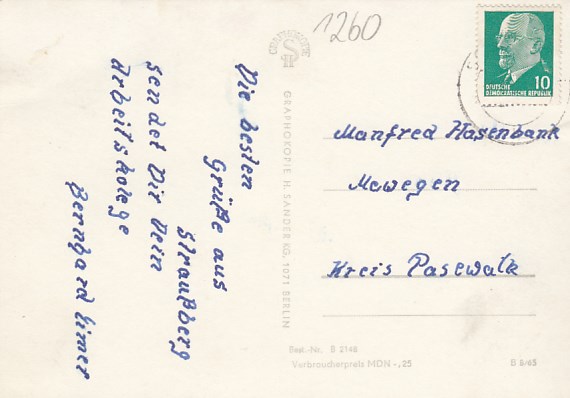 Die besten
Grüße aus
Straußberg
sendet Dir Dein
Arbeitskolege
Bernhard
GRAPHOKOPIE
1260
10
DEUTSCHE
DEMOKRATISCHE REPUBLIK
GRAPHOKOPIE H. SANDER KG, 1071 BERLIN
Manfred Hasenbank
Mewegen
Kreis Pasewalk
Best.-Nr. B 2146
Verbraucherpreis MDN -,25
B 8/65